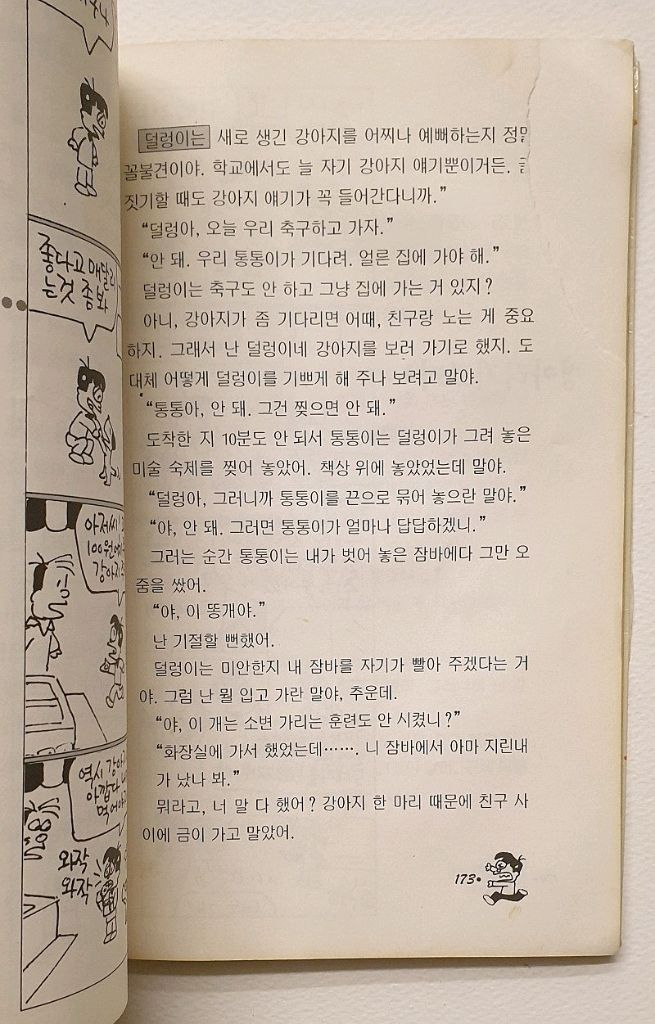 좋다고 매달리
는것 좀 봐
아저씨!
100원에
강아지
역시 강아
아깝다
먹어야
와작
와작
덜렁이는 새로 생긴 강아지를 어찌나 예뻐하는지 정말
꼴불견이야. 학교에서도 늘 자기 강아지 얘기뿐이거든.
짓기할 때도 강아지 얘기가 꼭 들어간다니까.”
“덜렁아, 오늘 우리 축구하고 가자.”
“안 돼. 우리 통통이가 기다려. 얼른 집에 가야 해.”
덜렁이는 축구도 안 하고 그냥 집에 가는 거 있지?
아니, 강아지가 좀 기다리면 어때, 친구랑 노는 게 중요
하지. 그래서 난 덜렁이네 강아지를 보러 가기로 했지. 도
대체 어떻게 덜렁이를 기쁘게 해 주나 보려고 말야.
“통통아, 안 돼. 그건 찢으면 안 돼.”
도착한 지 10분도 안 되서 통통이는 덜렁이가 그려 놓은
미술 숙제를 찢어 놓았어. 책상 위에 놓았었는데 말야.
“덜렁아, 그러니까 통통이를 끈으로 묶어 놓으란 말야.”
“야, 안 돼. 그러면 통통이가 얼마나 답답하겠니.”
그러는 순간 통통이는 내가 벗어 놓은 잠바에다 그만 오
줌을 쌌어.
“야, 이 똥개야.”
난 기절할 뻔했어.
덜렁이는 미안한지 내 잠바를 자기가 빨아 주겠다는 거
야. 그럼 난 뭘 입고 가란 말야, 추운데.
“야, 이 개는 소변 가리는 훈련도 안 시켰니?”
“화장실에 가서 했었는데……. 니 잠바에서 아마 지린내
가 났나 봐.”
뭐라고, 너 말 다 했어? 강아지 한 마리 때문에 친구 사
이에 금이 가고 말았어.
173